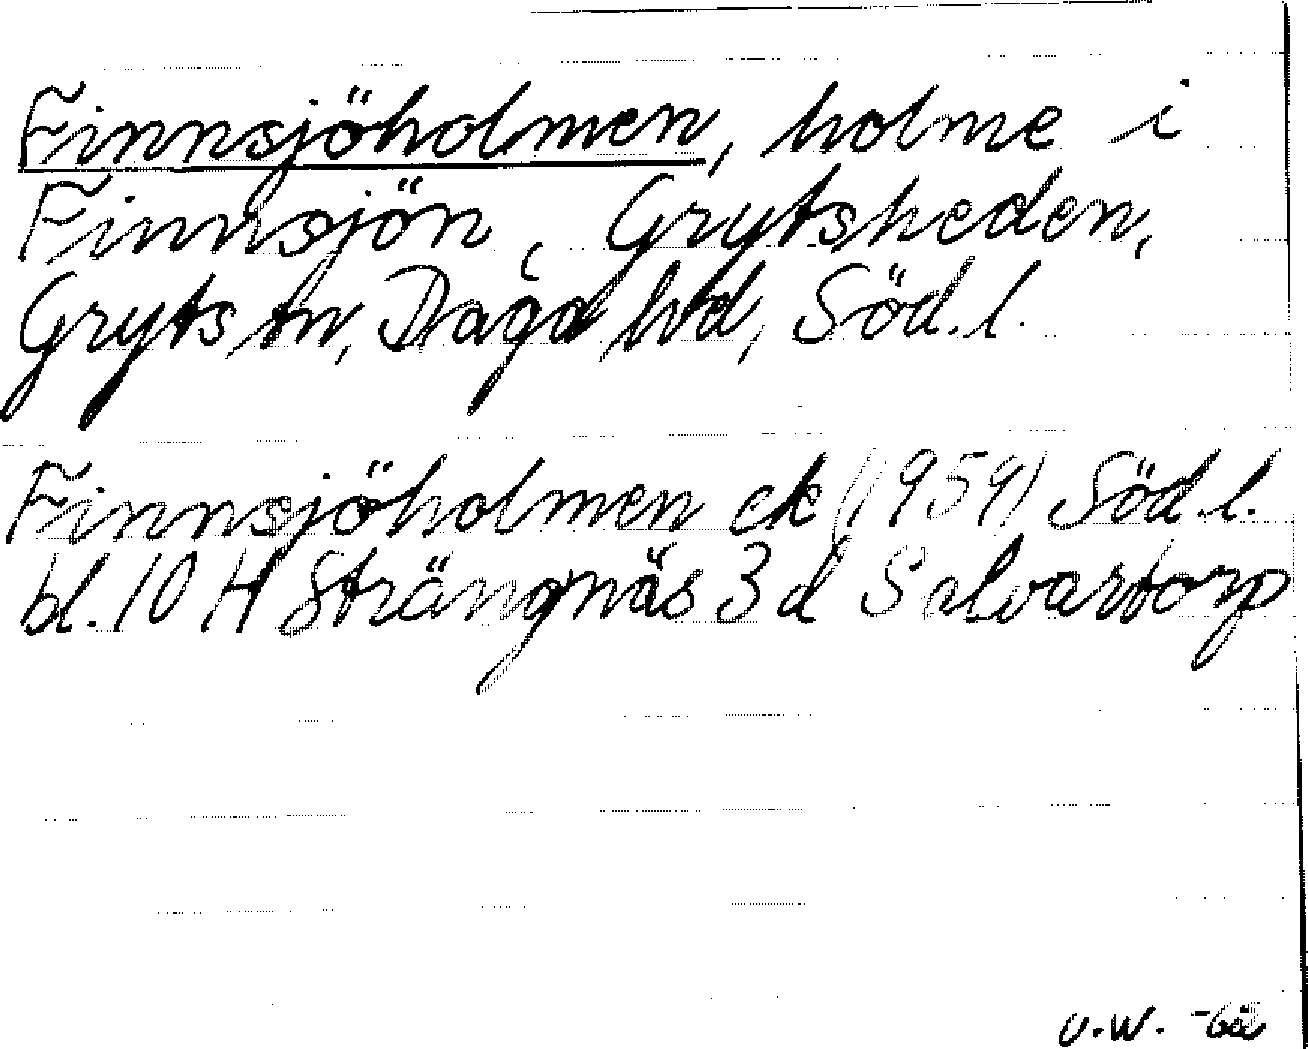 Finnsjöholmen, holme i
Finnsjön, Grytsheden,
Gryts sn, Daga hd, Söd. l.
Finnsjöholmen ek (1959) Söd. l.
bl. 10 H Strängnäs 3 d Salvartorp
U.W.